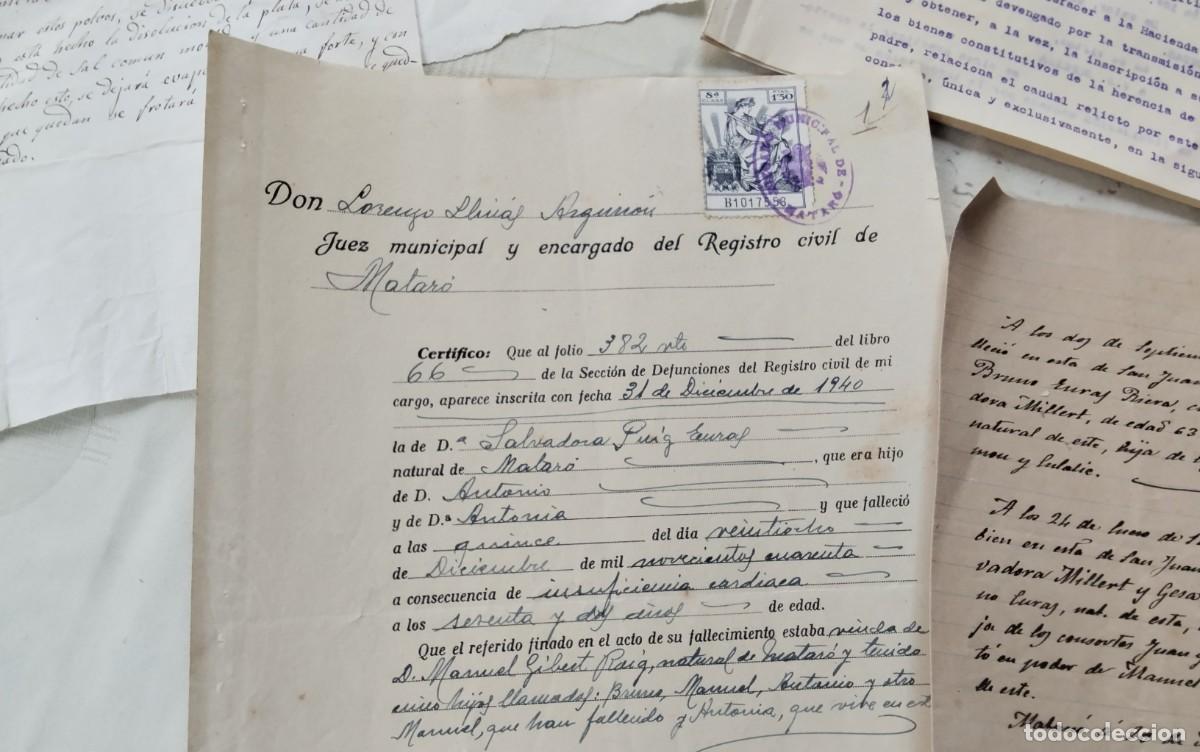 nar estos polvos, se
está hecho la disolucion de la plata, se
de sal comun y una cantidad de
forte, y con
hecho esto, se dejará
que quedan se frotará
Don Lorenzo Llinás
Juez municipal y encargado del Registro civil de
Mataró
8ª CLASE PTAS. 1'50
B1017553
MUNICIPAL DE MATARÓ
1
Certifico: Que al folio 382 vto del libro
66 de la Sección de Defunciones del Registro civil de mi
cargo, aparece inscrita con fecha 31 de Diciembre de 1940
la de D.ª Salvadora Puig Euras
natural de Mataró, que era hijo
de D. Antonio
y de D.ª Antonia y que falleció
a las quince del día veintiocho
de Diciembre de mil novecientos cuarenta
a consecuencia de insuficiencia cardiaca
a los setenta y dos años de edad.
Que el referido finado en el acto de su fallecimiento estaba viuda de
D. Manuel Gibert Roig, natural de Mataró y tenido
cinco hijos llamados: Bruno, Manuel, Antonio y otro
Manuel, que han fallecido y Antonia, que vive en
facer a la Hacienda
devengado por la transmisión
y obtener, a la vez, la inscripción a su
los bienes constitutivos de la herencia de
padre, relaciona el caudal relicto por este
única y exclusivamente, en la sigu
A los dos de Septiem
lleció en esta de San Juan
Bruno Euras Riera,
dora Millert, de edad 63
natural de esta, hija de
mon y Eulalie.
A los 24 de Enero de
bien en esta de San Juan
vadora Millert y Gesa
no Euras, nat. de esta,
ja de los consortes Juan y
tó en poder de Manuel
de este.
todocoleccion